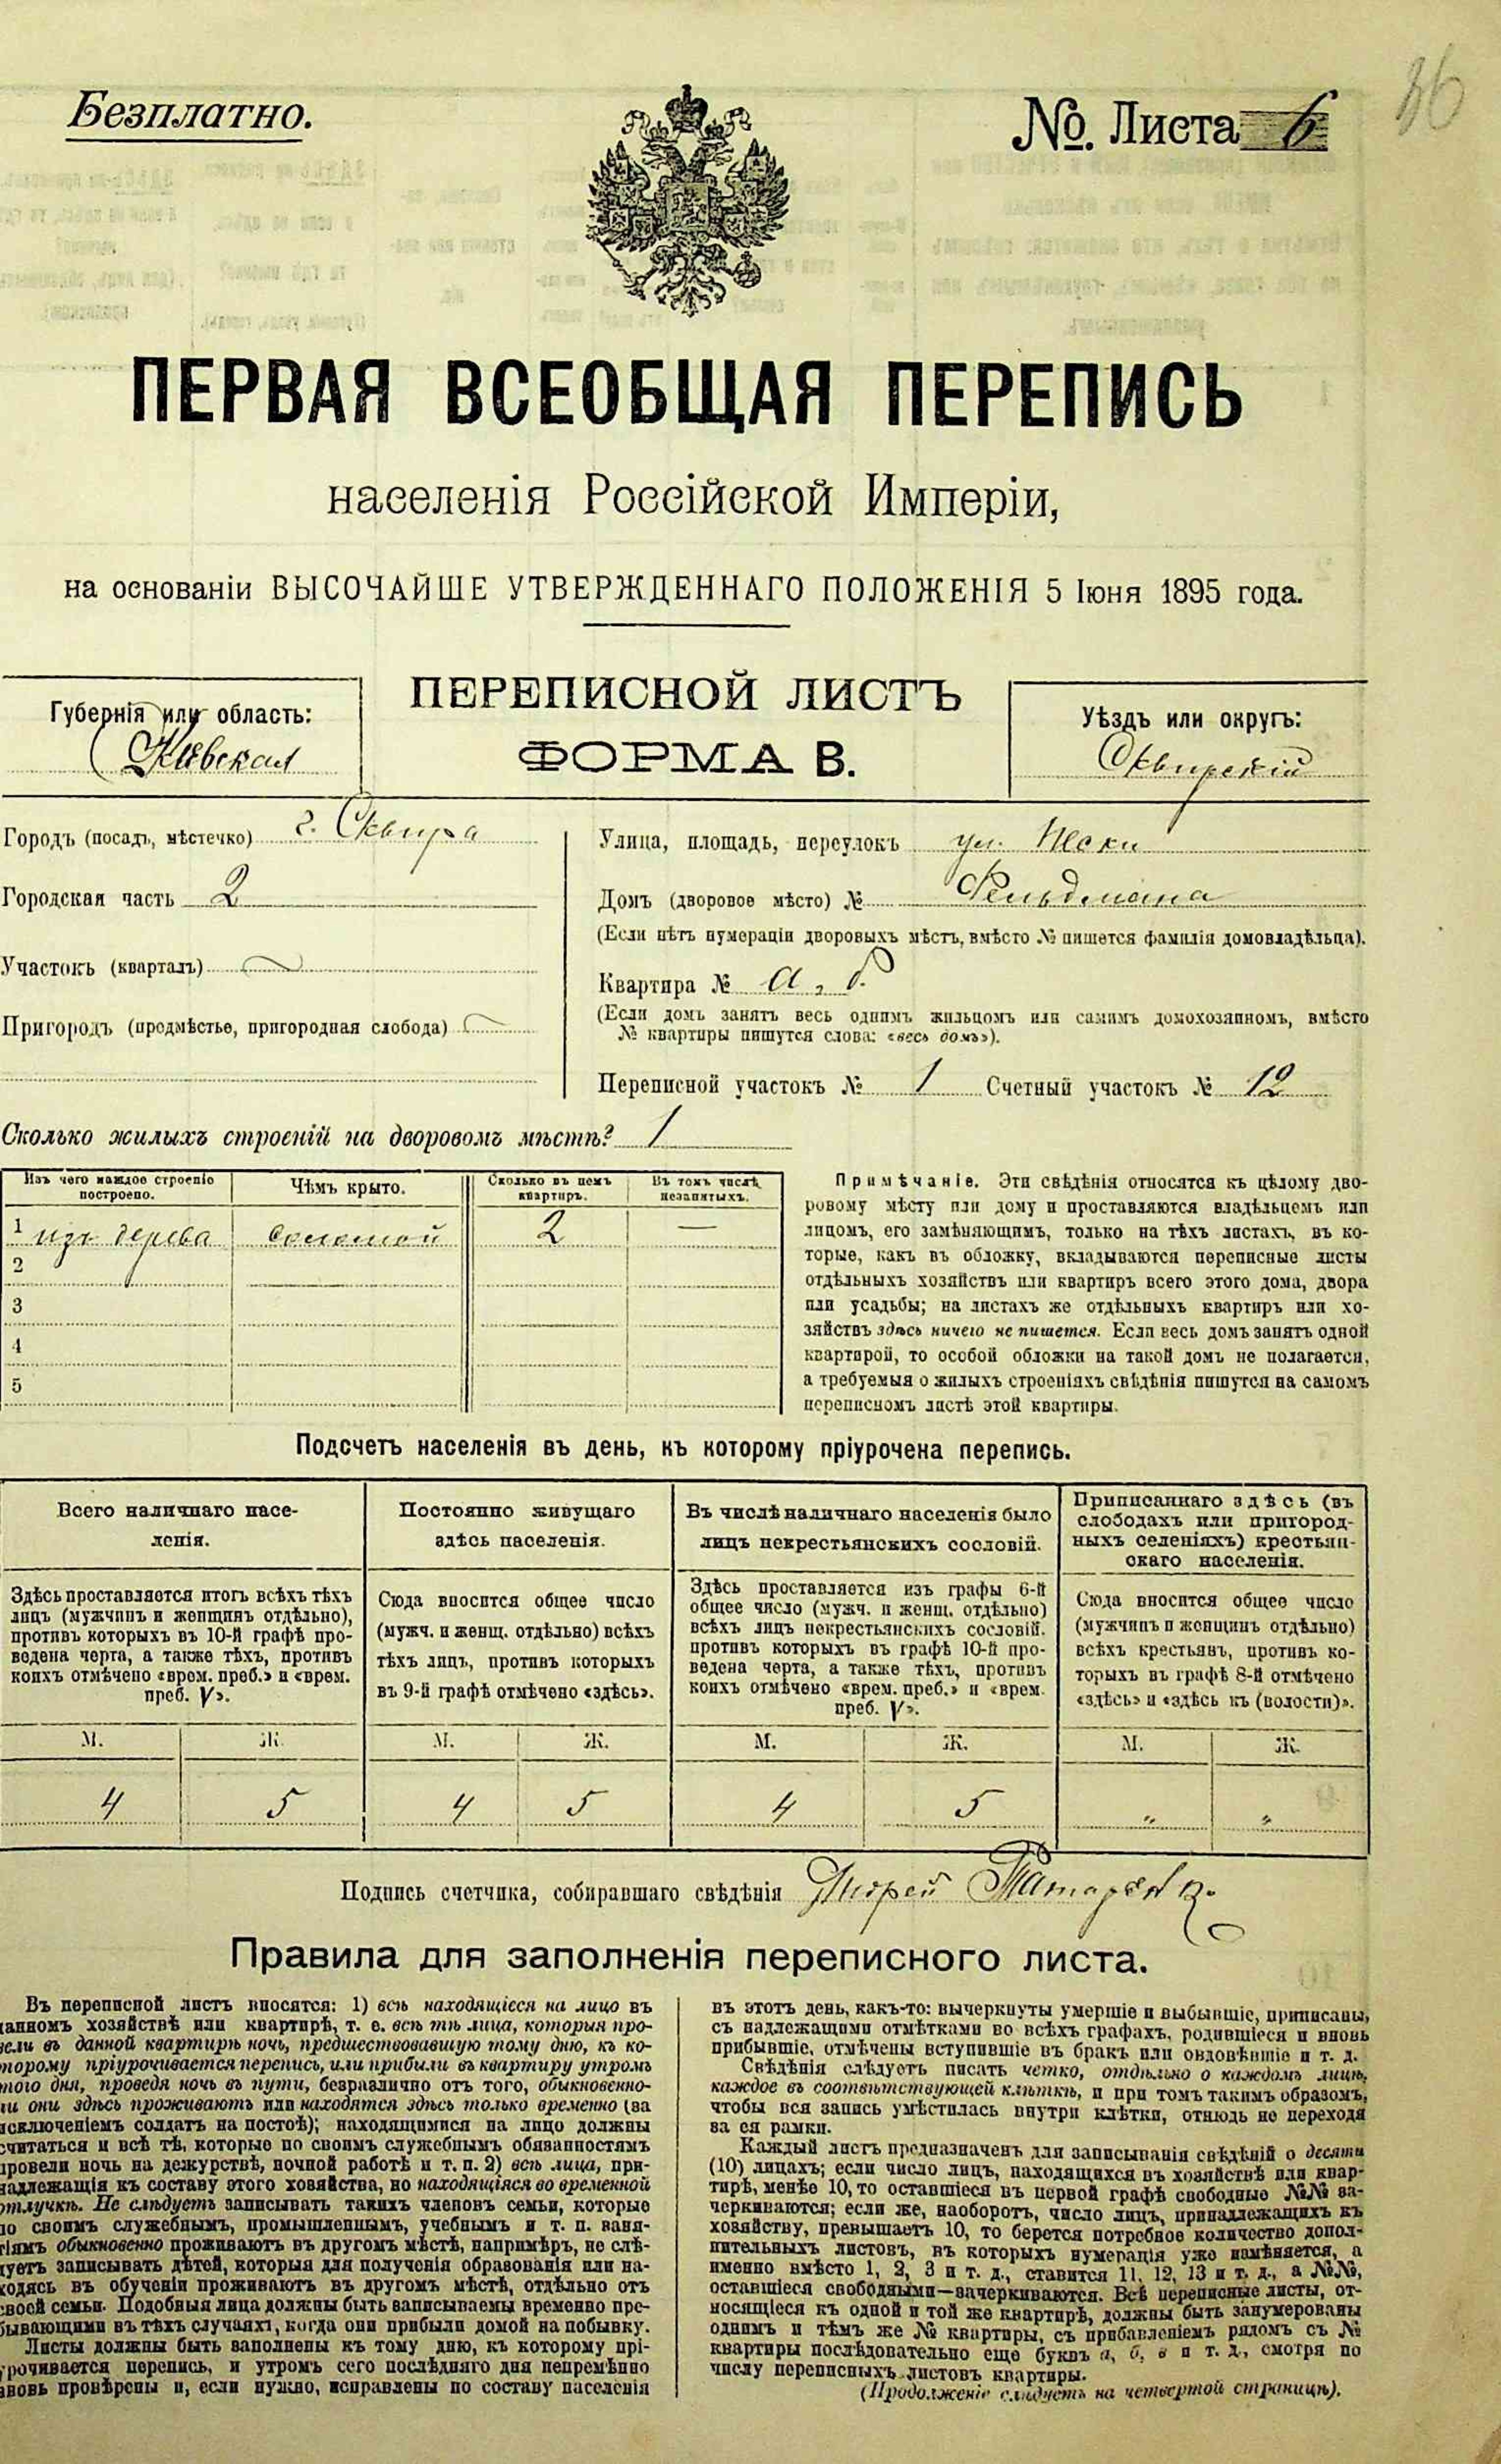 36
Безплатно.
№. Листа 6
ПЕРВАЯ ВСЕОБЩАЯ ПЕРЕПИСЬ
населенія Россійской Имперіи,
на основаніи ВЫСОЧАЙШЕ УТВЕРЖДЕННАГО ПОЛОЖЕНІЯ 5 Іюня 1895 года.
ПЕРЕПИСНОЙ ЛИСТЪ
ФОРМА В.
Губернія или область:
Кіевская
Уѣздъ или округъ:
Сквирскій
Городъ (посадъ, мѣстечко) г. Сквира
Городская часть 2
Участокъ (кварталъ)
Пригородъ (предмѣстье, пригородная слобода)
Улица, площадь, переулокъ ул. Пески
Домъ (дворовое мѣсто) № Фельдмана
(Если нѣтъ нумераціи дворовыхъ мѣстъ, вмѣсто № пишется фамилія домовладѣльца).
Квартира № а, б.
(Если домъ занятъ весь однимъ жильцомъ или самимъ домохозяиномъ, вмѣсто
№ квартиры пишутся слова: «весь домъ»).
Переписной участокъ № 1 Счетный участокъ № 12
Сколько жилыхъ строеній на дворовомъ мѣстѣ? 1
Изъ чего каждое строеніе построено.
Чѣмъ крыто.
Сколько въ немъ квартиръ.
Въ томъ числѣ незанятыхъ.
1 изъ дерева соломой 2 —
2
3
4
5
Примѣчаніе. Эти свѣдѣнія относятся къ цѣлому дво-
ровому мѣсту или дому и проставляются владѣльцемъ или
лицомъ, его замѣняющимъ, только на тѣхъ листахъ, въ ко-
торые, какъ въ обложку, вкладываются переписные листы
отдѣльныхъ хозяйствъ или квартиръ всего этого дома, двора
или усадьбы; на листахъ же отдѣльныхъ квартиръ или хо-
зяйствъ здѣсь ничего не пишется. Если весь домъ занятъ одной
квартирой, то особой обложки на такой домъ не полагается,
а требуемыя о жилыхъ строеніяхъ свѣдѣнія пишутся на самомъ
переписномъ листѣ этой квартиры.
Подсчетъ населенія въ день, къ которому пріурочена перепись.
Всего наличнаго насе-
ленія.
Здѣсь проставляется итогъ всѣхъ тѣхъ
лицъ (мужчинъ и женщинъ отдѣльно),
противъ которыхъ въ 10-й графѣ про-
ведена черта, а также тѣхъ, противъ
коихъ отмѣчено «врем. преб.» и «врем.
преб. V».
Постоянно живущаго
здѣсь населенія.
Сюда вносится общее число
(мужч. и женщ. отдѣльно) всѣхъ
тѣхъ лицъ, противъ которыхъ
въ 9-й графѣ отмѣчено «здѣсь».
Въ числѣ наличнаго населенія было
лицъ некрестьянскихъ сословій.
Здѣсь проставляется изъ графы 6-й
общее число (мужч. и женщ. отдѣльно)
всѣхъ лицъ некрестьянскихъ сословій.
противъ которыхъ въ графѣ 10-й про-
ведена черта, а также тѣхъ, противъ
коихъ отмѣчено «врем. преб.» и «врем.
преб. V».
Приписаннаго здѣсь (въ
слободахъ или пригород-
ныхъ селеніяхъ) крестьян-
скаго населенія.
Сюда вносится общее число
(мужчинъ и женщинъ отдѣльно)
всѣхъ крестьянъ, противъ ко-
торыхъ въ графѣ 8-й отмѣчено
«здѣсь» и «здѣсь къ (волости)».
М. Ж. М. Ж. М. Ж. М. Ж.
4 5 4 5 4 5 " "
Подпись счетчика, собиравшаго свѣдѣнія Андрей
Правила для заполненія переписного листа.
Въ переписной листъ вносятся: 1) всѣ находящіеся на лицо въ
данномъ хозяйствѣ или квартирѣ, т. е. всѣ тѣ лица, которыя про-
вели въ данной квартирѣ ночь, предшествовавшую тому дню, къ ко-
торому пріурочивается перепись, или прибыли въ квартиру утромъ
того дня, проведя ночь въ пути, безразлично отъ того, обыкновенно-
ли они здѣсь проживаютъ или находятся здѣсь только временно (за
исключеніемъ солдатъ на постоѣ); находящимися на лицо должны
считаться и всѣ тѣ, которые по своимъ служебнымъ обязанностямъ
провели ночь на дежурствѣ, ночной работѣ и т. п. 2) всѣ лица, при-
надлежащія къ составу этого хозяйства, но находящіяся во временной
отлучкѣ. Не слѣдуетъ записывать такихъ членовъ семьи, которые
по своимъ служебнымъ, промышленнымъ, учебнымъ и т. п. заня-
тіямъ обыкновенно проживаютъ въ другомъ мѣстѣ, напримѣръ, не слѣ-
дуетъ записывать дѣтей, которыя для полученія образованія или на-
ходясь въ обученіи проживаютъ въ другомъ мѣстѣ, отдѣльно отъ
своей семьи. Подобныя лица должны быть записываемы временно пре-
бывающими въ тѣхъ случаяхъ, когда они прибыли домой на побывку.
Листы должны быть заполнены къ тому дню, къ которому прі-
урочивается перепись, и утромъ сего послѣдняго дня непремѣнно
вновь провѣрены и, если нужно, исправлены по составу населенія
въ этотъ день, какъ-то: вычеркнуты умершіе и выбывшіе, приписаны,
съ надлежащими отмѣтками во всѣхъ графахъ, родившіеся и вновь
прибывшіе, отмѣчены вступившіе въ бракъ или овдовѣвшіе и т. д.
Свѣдѣнія слѣдуетъ писать четко, отдѣльно о каждомъ лицѣ,
каждое въ соотвѣтствующей клѣткѣ, и при томъ такимъ образомъ,
чтобы вся запись умѣстилась внутри клѣтки, отнюдь не переходя
за ея рамки.
Каждый листъ предназначенъ для записыванія свѣдѣній о десяти
(10) лицахъ; если число лицъ, находящихся въ хозяйствѣ или квар-
тирѣ, менѣе 10, то оставшіеся въ первой графѣ свободные №№ за-
черкиваются; если же, наоборотъ, число лицъ, принадлежащихъ къ
хозяйству, превышаетъ 10, то берется потребное количество допол-
нительныхъ листовъ, въ которыхъ нумерація уже измѣняется, а
именно вмѣсто 1, 2, 3 и т. д., ставится 11, 12, 13 и т. д., а №№,
оставшіеся свободными—зачеркиваются. Всѣ переписные листы, от-
носящіеся къ одной и той же квартирѣ, должны быть занумерованы
однимъ и тѣмъ же № квартиры, съ прибавленіемъ рядомъ съ №
квартиры послѣдовательно еще буквъ а, б, в и т. д., смотря по
числу переписныхъ листовъ квартиры.
(Продолженіе слѣдуетъ на четвертой страницѣ).